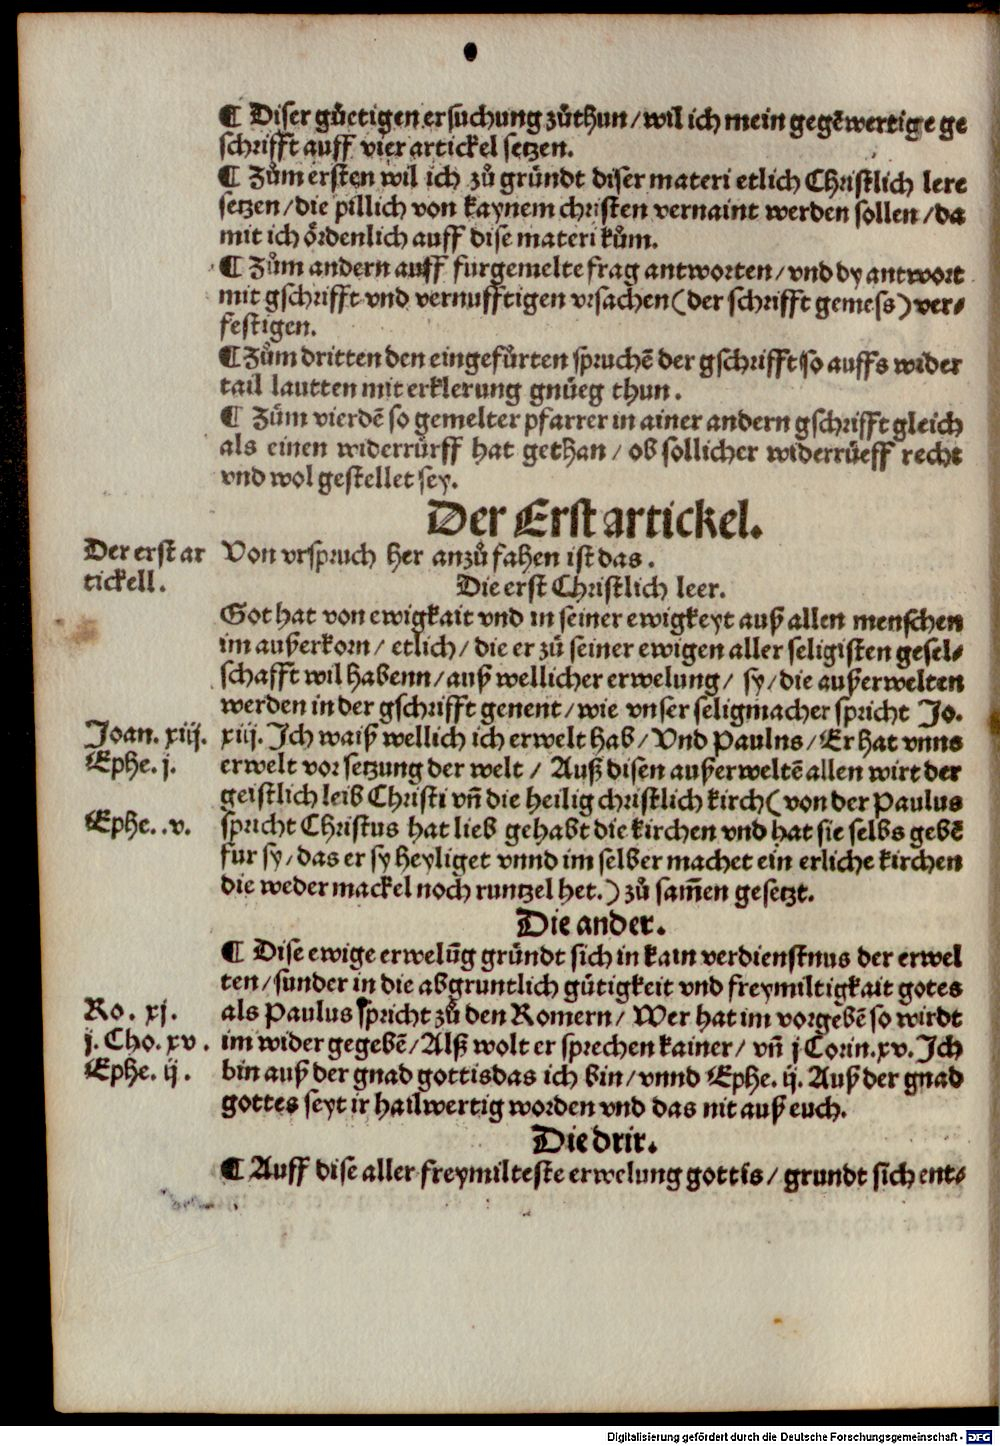 ¶ Diser gůetigen ersuchung zůthun / wil ich mein gegẽwertige ge
schrifft auff vier artickel setzen.
¶ Zům ersten wil ich zů grůndt diser materi etlich Christlich lere
setzen / die pillich von kaynem christen vernaint werden sollen / da
mit ich őrdenlich auff dise materi kům.
¶ Zům andern auff furgemelte frag antworten / vnd dy antwort
mit gschrifft vnd vernufftigen vrsachen (der schrifft gemess) ver⸗
festigen.
¶ Zům dritten den eingefůrten spruchẽ der gschrifft so auffs wider
tail lautten mit erklerung gnůeg thun.
¶ Zům vierdẽ so gemelter pfarrer in ainer andern gschrifft gleich
als einen widerrůrff hat gethan / ob sollicher widerrůeff recht
vnd wol gestellet sey.
Der Erst artickel.
Der erst ar
tickell.
Von vrspruch her anzů fahen ist das.
Die erst Christlich leer.
Got hat von ewigkait vnd in seiner ewigkeyt auß allen menschen
im außerkorn / etlich / die er zů seiner ewigen aller seligisten gesel⸗
schafft wil habenn / auß wellicher erwelung / sy / die außerwelten
werden in der gschrifft genent / wie vnser seligmacher spricht Jo.
Joan. xiij.
xiij. Ich waiß wellich ich erwelt hab / Vnd Paulns / Er hat vnns
Ephe. j.
erwelt vor setzung der welt / Auß disen außerweltẽ allen wirt der
geistlich leib Christi vñ die heilig christlich kirch (von der Paulus
Ephe. .v.
spricht Christus hat lieb gehabt die kirchen vnd hat sie selbs gebẽ
fur sy / das er sy heyliget vnnd im selber machet ein erliche kirchen
die weder mackel noch runtzel het.) zů sam̃en gesetzt.
Die ander.
¶ Dise ewige erwelũg grůndt sich in kain verdienstnus der erwel
ten / sunder in die abgruntlich gůtigkeit vnd freymiltigkait gotes
Ro. xj.
als Paulus spricht zů den Romern / Wer hat im vorgebẽ so wirdt
j. Cho. xv.
im wider gegebẽ / Alß wolt er sprechen kainer / vñ j Corin. xv. Ich
Ephe. ij.
bin auß der gnad gottis das ich bin / vnnd Ephe. ij. Auß der gnad
gottes seyt ir hailwertig worden vnd das nit auß euch.
Die drit.
¶ Auff dise aller freymilteste erwelung gottis / grundt sich ent⸗
Digitalisierung gefördert durch die Deutsche Forschungsgemeinschaft - DFG